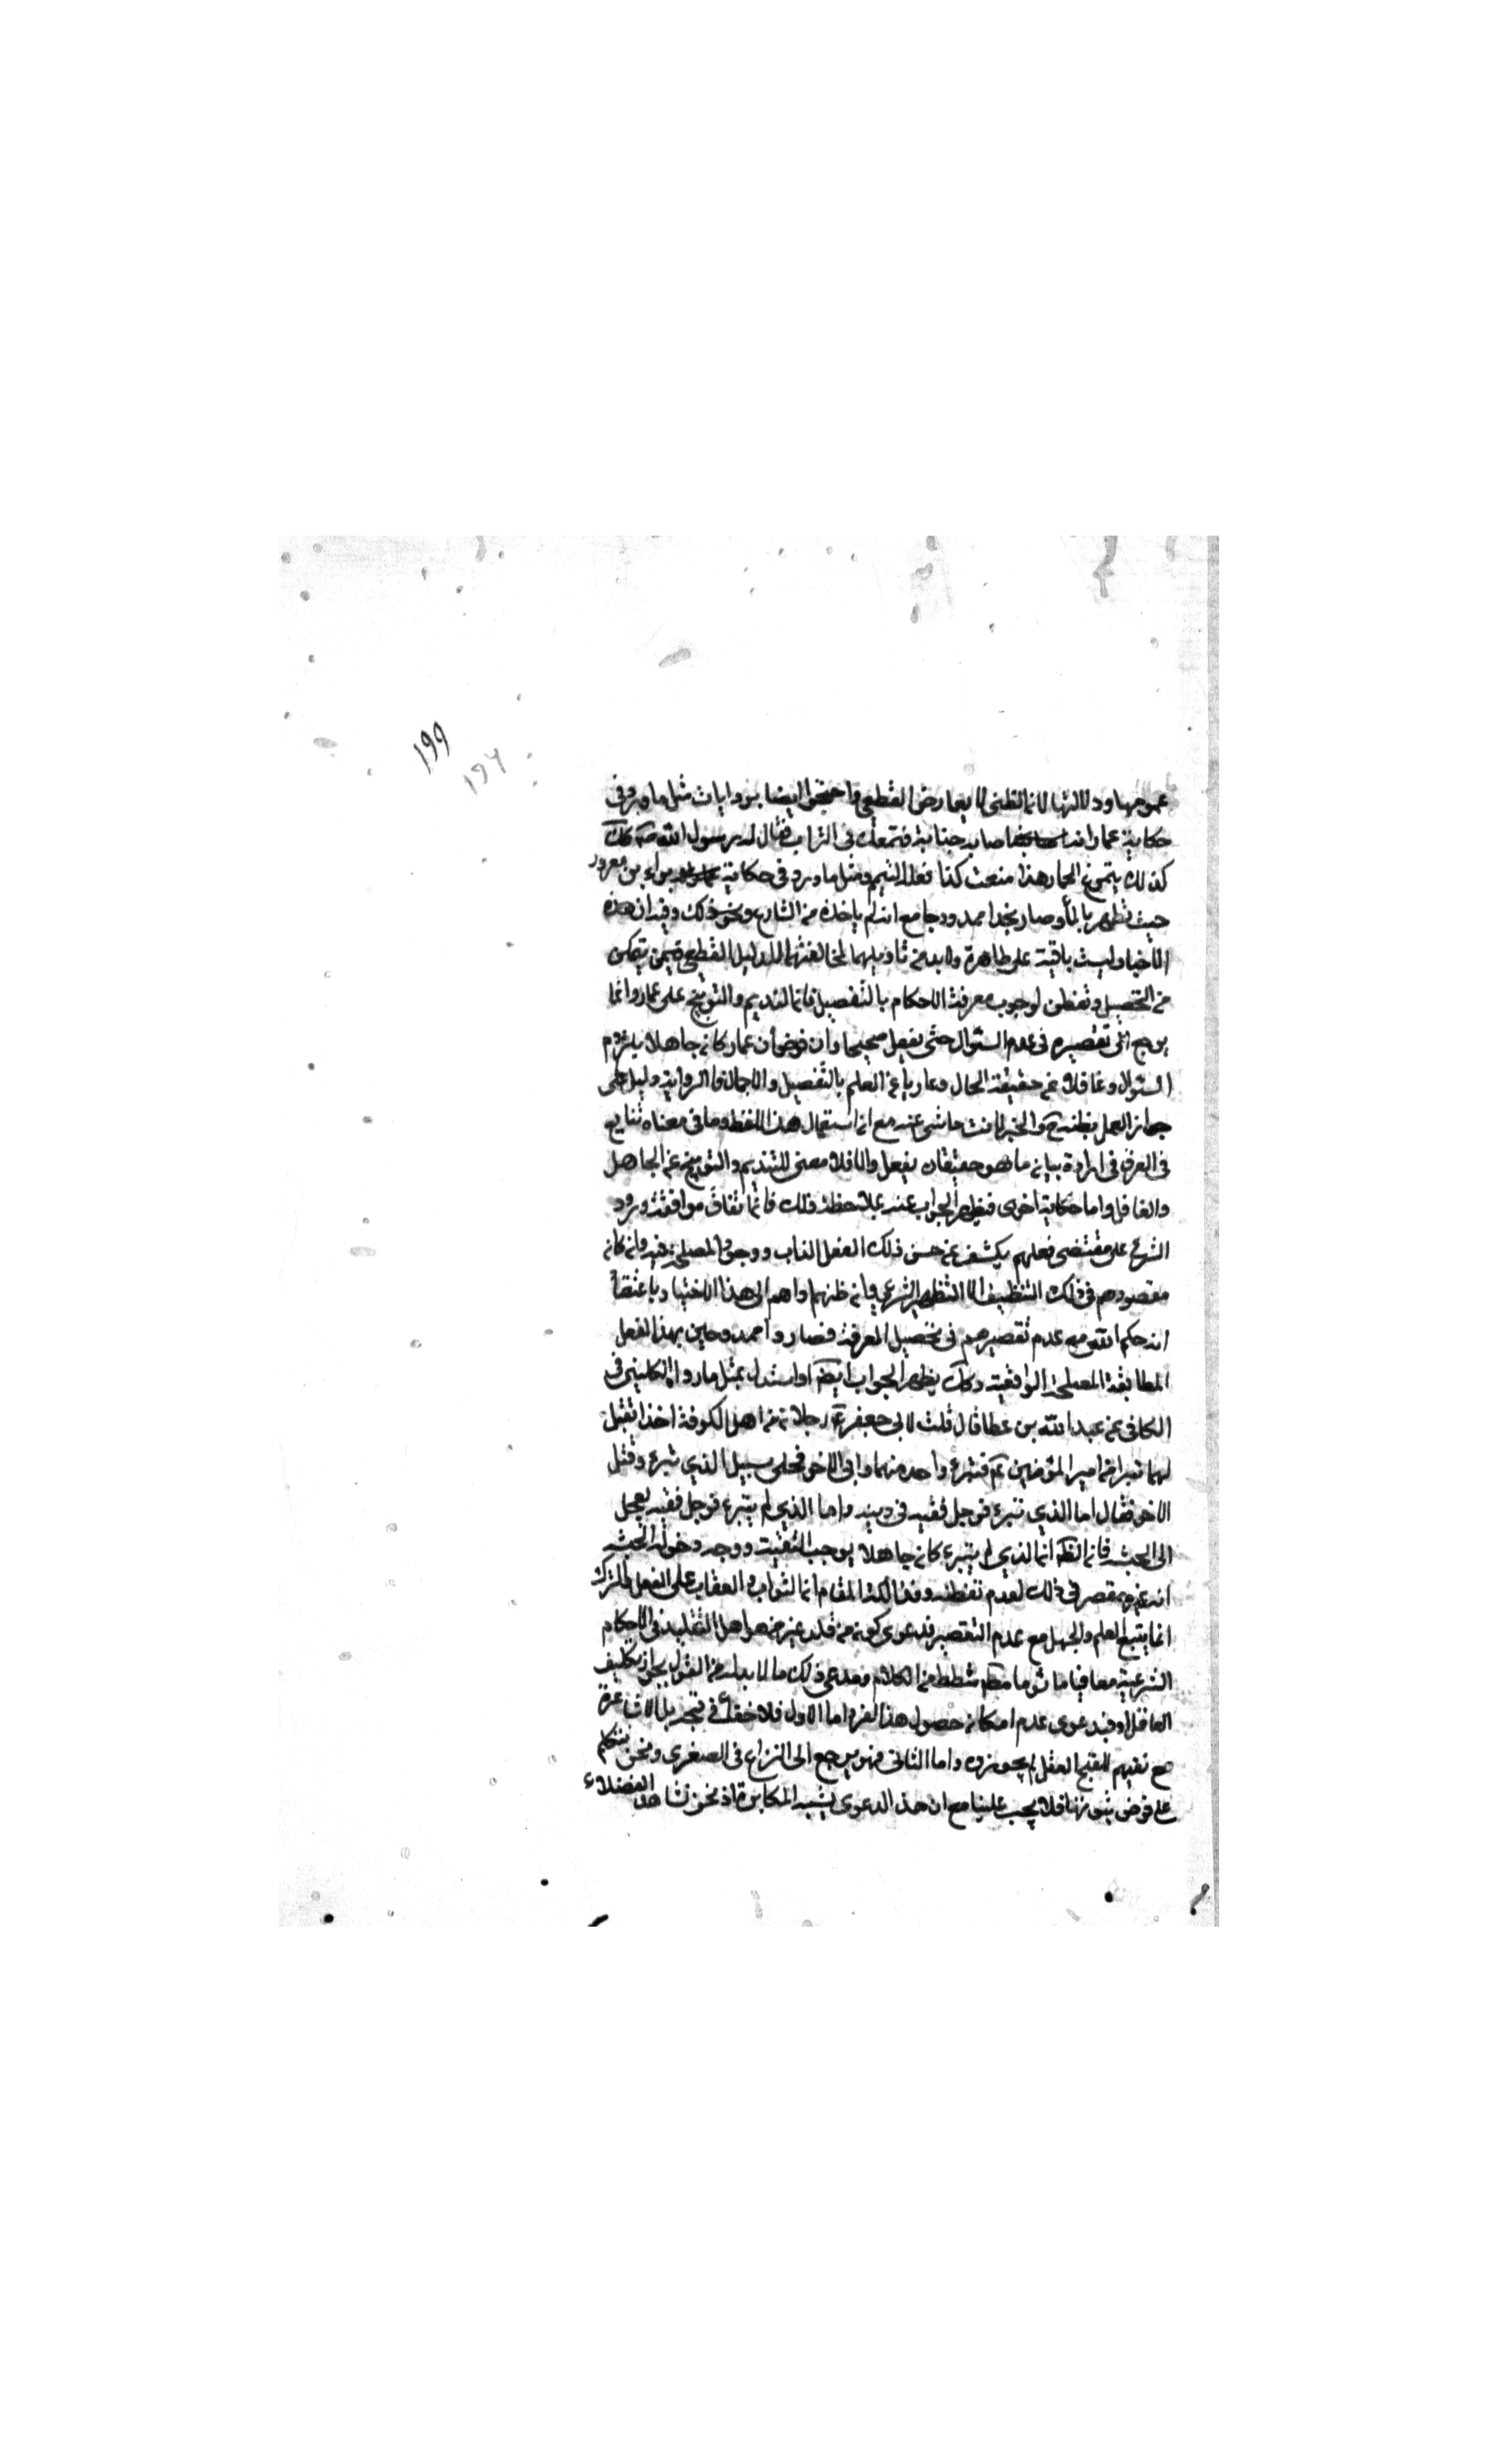 ١٩٩
١٩٦
عمومها ودلالتها لان الظني لا يعارض القطعي واحتجوا ايضا بروايات مثل ما ورد في
حكاية عمار انه اصابه جنابة فتمعك في التراب فقال له رسول الله ص كك
كذلك يتمرغ الحمار هذا صنعت كذا فعله التيمم ومثل ما ورد في حكاية براء بن معرور
حيث تطهر بالماء وصار بهذا ممدوحا مع انه لم ياخذه من الشارع ونحو ذلك وفيه ان هذه
الاخبار ليست باقية على ظاهرة ولابد من تاويلهما لمخالفتهما للدليل القطعي فيمن يتمكن
من التحصيل وتفطن لوجوب معرفة الاحكام بالتفصيل فان التنديم والتوبيخ على عمار وانما
يرجع الى تقصيره في عدم السئوال حتى يفعل صحيحا وان فرض ان عمار كان جاهلا بلزوم
السئوال وغافلا عن حقيقة الحال وعاريا عن العلم بالتفصيل والاجمال فالرواية دليل على
جواز العمل بظنه مع ان استعمال هذا اللفظ وما في معناه شايع
في العرف في ارادة بيان ما هو حقيقان يفعل والا فلا معنى للتنديم والتوبيخ عن الجاهل
والغافل واما حكاية اخرى فيظهر الجواب عنه بملاحظة ذلك فان اتفاق موافقة ورود
الشرع على مقتضى فعلهم يكشف عن حسن ذلك الفعل الذاب ووجود المصلحة فيه وان كان
مقصودهم في ذلك التنظيف لا التطهير الشرعي وان ظنهم اداهم الى هذا الاختيار باعتقاد
انه حكم الله مع عدم تقصيرهم في تحصيل المعرفة فصاروا ممدوحين بهذا الفعل
المطابقة المصلحة الواقعية وكك يظهر الجواب ايضا لو استدل بمثل ما رواه الكليني في
الكافي عن عبد الله بن عطا قال قلت لابي جعفر ع رجلان من اهل الكوفة اخذا فقيل
لهما تبرا من امير المؤمنين ع فتبرء واحد منهما وابى الاخر فخلى سبيل الذي تبرء وقتل
الاخر فقال اما الذي تبرء فرجل فقيه في دينه واما الذي لم يتبرء فرجل فقيه تعجل
الى الجنة فان الظ ان الذي لم يتبرء كان جاهلا بوجوب التقية ووجه دخوله الجنة
انه غير مقصر في ذلك لعدم تفطنه وفذلكة المقام ان الثواب والعقاب على الفعل والترك
انما يتبع العلم والجهل مع عدم التقصير فدعوى كون من قلد غير من هو اهل التقليد في الاحكام
الشرعية معاقبا ماثوما مط شطط من الكلام ومدعي ذلك مما لابد له من القول بجواز تكليف
الغافل او فيه دعوى عدم امكان حصول هذا الفرد اما الاول فلا خفاء في قبحه بل الاشاعرة
مع نفيهم القبح العقلي لم يجوزوه واما الثاني فهو يرجع الى النزاع في الصغرى ونحن نتكلم
على فرض ثبوتها فلا يجب علينا مع ان هذا الدعوى يشبه المكابرة اذ نحن نشاهد الفضلاء